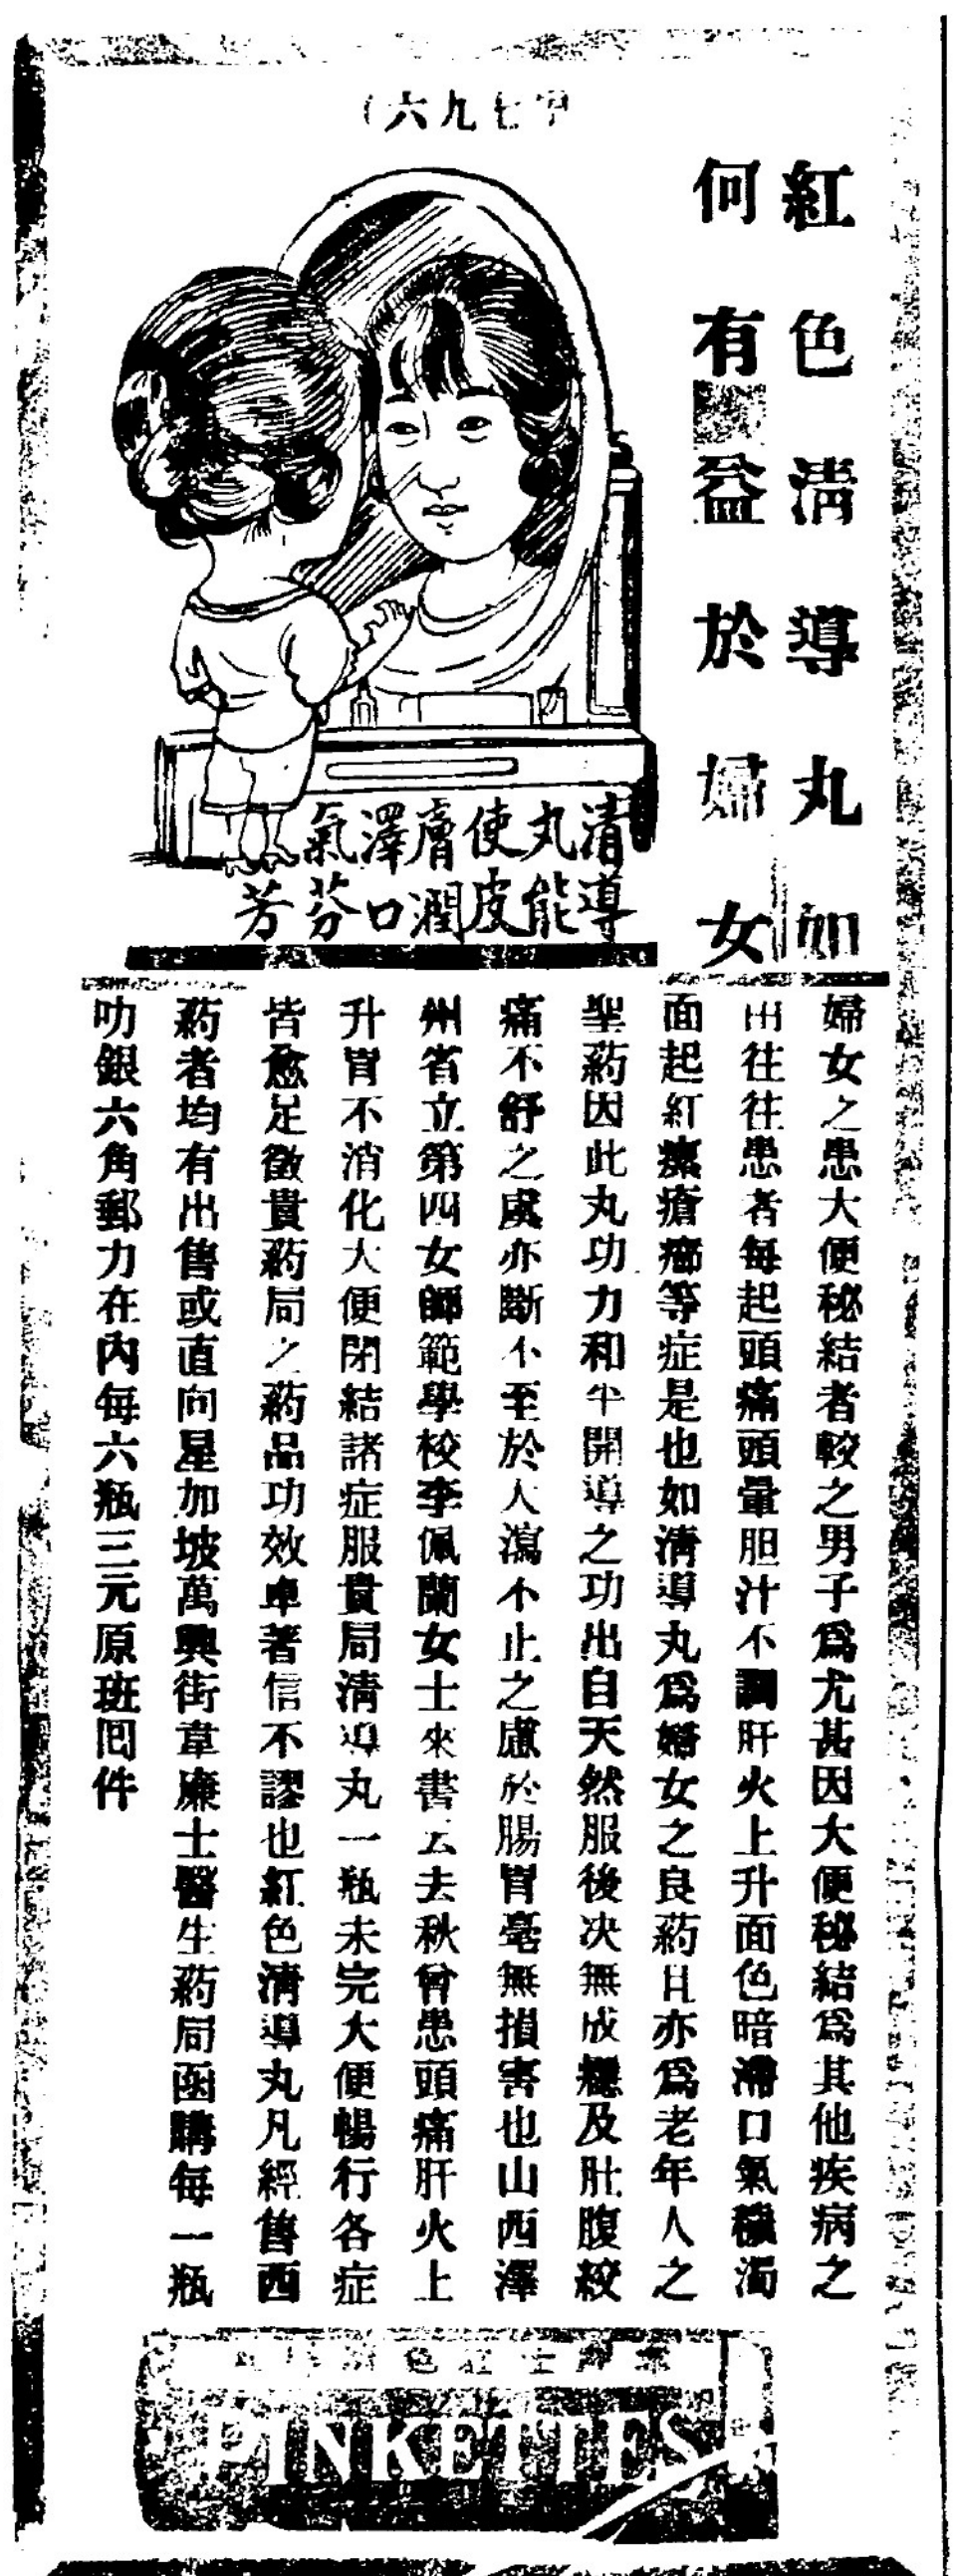 字七九六
紅色清導丸如
何有益於婦女
清導丸能使皮膚潤澤口氣芬芳
婦女之患大便秘結者較之男子爲尤甚因大便秘結爲其他疾病之
由往往患者每起頭痛頭暈胆汁不調肝火上升面色暗滯口氣穢濁
面起紅瘰瘡癤等症是也如清導丸爲婦女之良葯且亦爲老年人之
聖葯因此丸功力和平開導之功出自天然服後决無成癮及肚腹絞
痛不舒之處亦斷不至於大瀉不止之慮於腸胃毫無損害也山西澤
州省立第四女師範學校李佩蘭女士來書云去秋曾患頭痛肝火上
升胃不消化大便閉結諸症服貴局清導丸一瓶未完大便暢行各症
皆愈足徵貴葯局之葯品功效卓著信不謬也紅色清導丸凡經售西
葯者均有出售或直向星加坡萬興街韋廉士醫生葯局函購每一瓶
叻銀六角郵力在內每六瓶三元原班囘件
PINKETTES